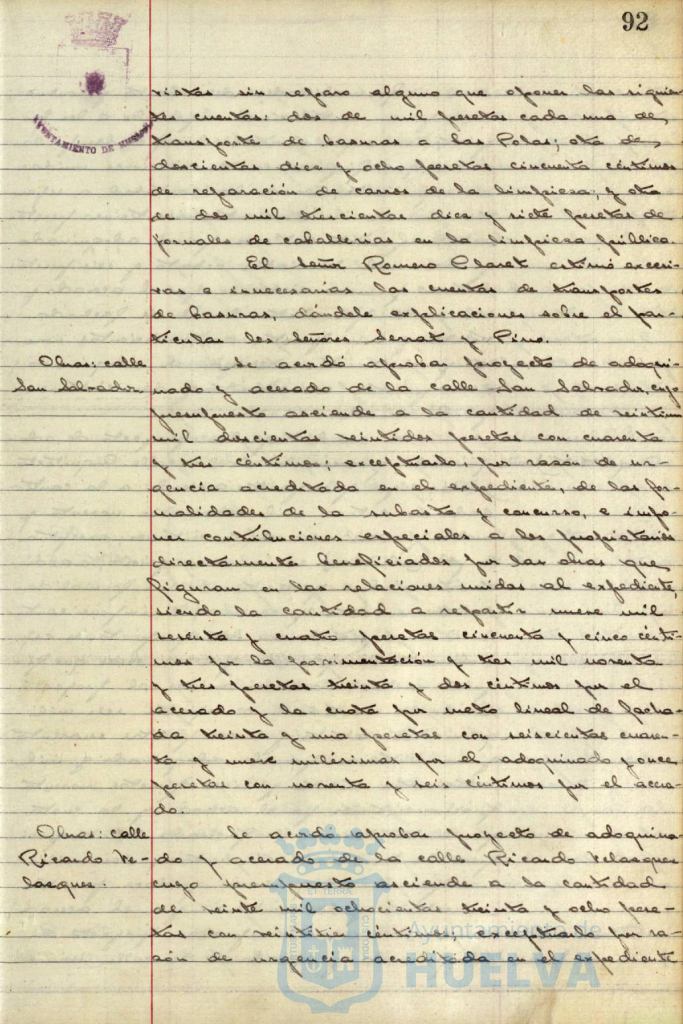 92
AYUNTAMIENTO DE HUELVA
vistas sin reparo alguno que oponer las siguien-
tes cuentas: dos de mil pesetas cada una de
transporte de basuras a las Potas; otra de
doscientas diez y ocho pesetas cincuenta céntimos
de reparación de carros de la limpieza; y otra
de dos mil trescientas diez y siete pesetas de
jornales de caballerías en la limpieza pública.
El Señor Romero Claret estimó excesi-
vas e innecesarias las cuentas de transportes
de basuras, dándole explicaciones sobre el par-
ticular los Señores Serrat y Pino.
Obras: calle
San Salvador
Se acordó aprobar proyecto de adoqui-
nado y acerado de la calle San Salvador, cuyo
presupuesto asciende a la cantidad de veintiun
mil doscientas veintidos pesetas con cuarenta
y tres céntimos; exceptuarlo, por razón de ur-
gencia acreditada en el expediente, de las for-
malidades de la subasta y concurso, e impo-
ner contribuciones especiales a los propietarios
directamente beneficiados por las obras que
figuran en las relaciones unidas al expediente,
siendo la cantidad a repartir nueve mil
sesenta y cuatro pesetas cincuenta y cinco cénti-
mos por la pavimentación y tres mil noventa
y tres pesetas treinta y dos céntimos por el
acerado y la cuota por metro lineal de facha-
da treinta y una pesetas con seiscientas cuaren-
ta y nueve milésimas por el adoquinado y once
pesetas con noventa y seis céntimos por el acera-
do.
Obras: calle
Ricardo Ve-
lasquez.
Se acordó aprobar proyecto de adoquina-
do y acerado de la calle Ricardo Velasquez
cuyo presupuesto asciende a la cantidad
de veinte mil ochocientas treinta y ocho pese-
tas con céntimos; exceptuarlo por ra-
zón de urgencia acreditada en el expediente
Ayuntamiento de
HUELVA